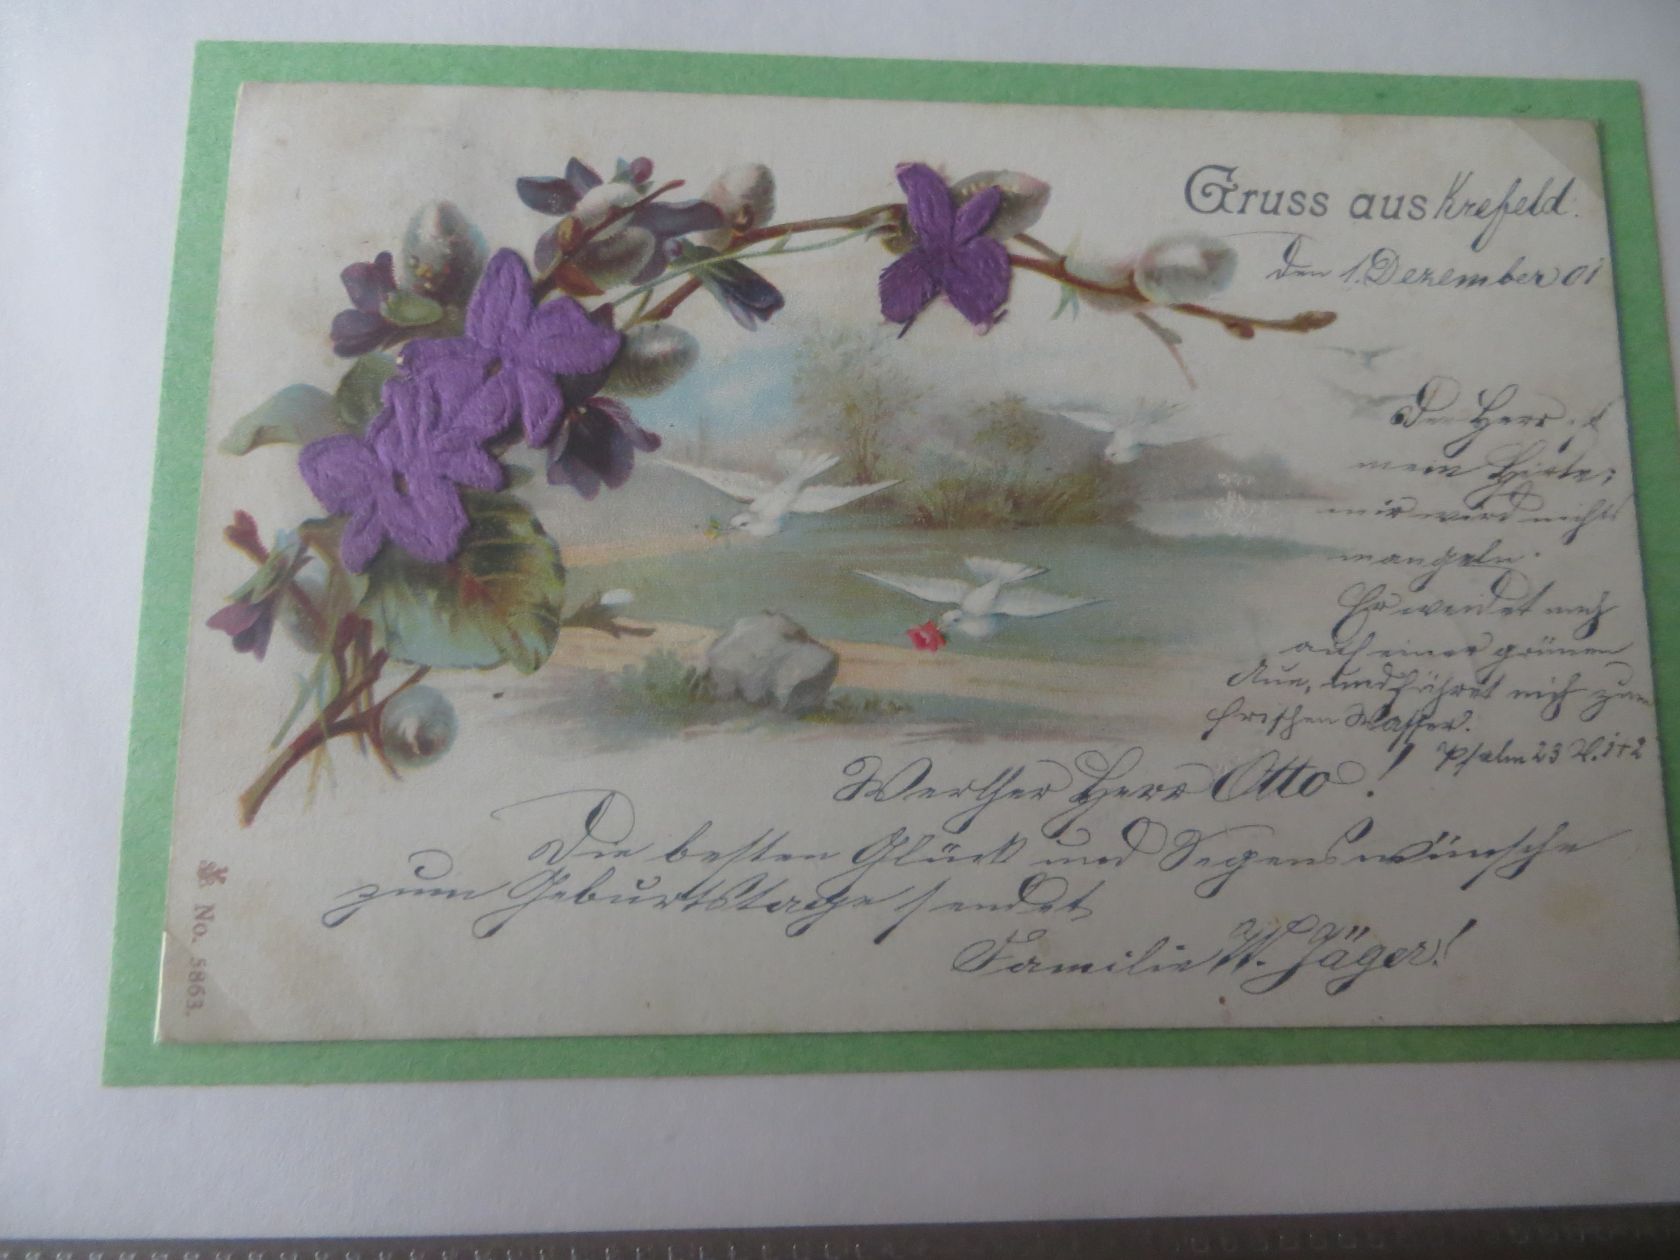 Gruss aus Krefeld.
den 1. Dezember 01
Der Herr ist
mein Hirte;
mir wird nichts
mangeln.
Er weidet mich
auf einer grünen
Aue, und führet mich zum
frischen Wasser.
Psalm 23 V. 1+2
Werther Herr Otto!
Die besten Glück und Segenswünsche
zum Geburtstage sendet
Familie W. Jäger!
No. 5863.